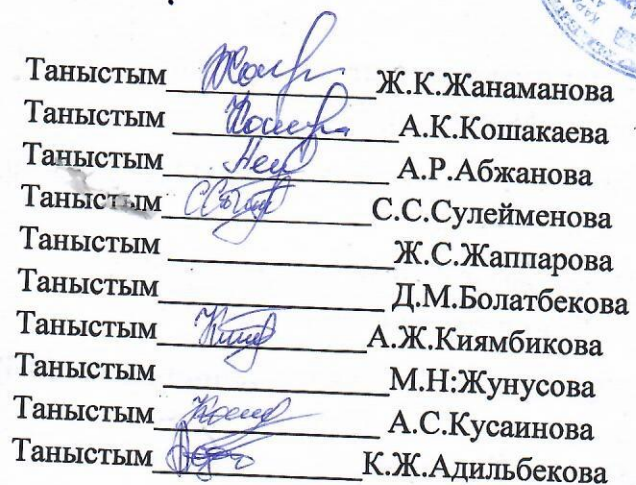 Таныстым____________Ж.К.Жанаманова
Таныстым ____________А.К.Кошакаева
Таныстым____________ А.Р.Абжанова
Таныстым ____________С.С.Сулейменова
Таныстым ____________Ж.С.Жаппарова
Таныстым____________ Д.М.Болатбекова
Таныстым ____________А.Ж.Киямбикова
Таныстым ____________М.Н:Жунусова
Таныстым ____________ А.С.Кусаинова
Таныстым____________К.Ж.Адильбекова